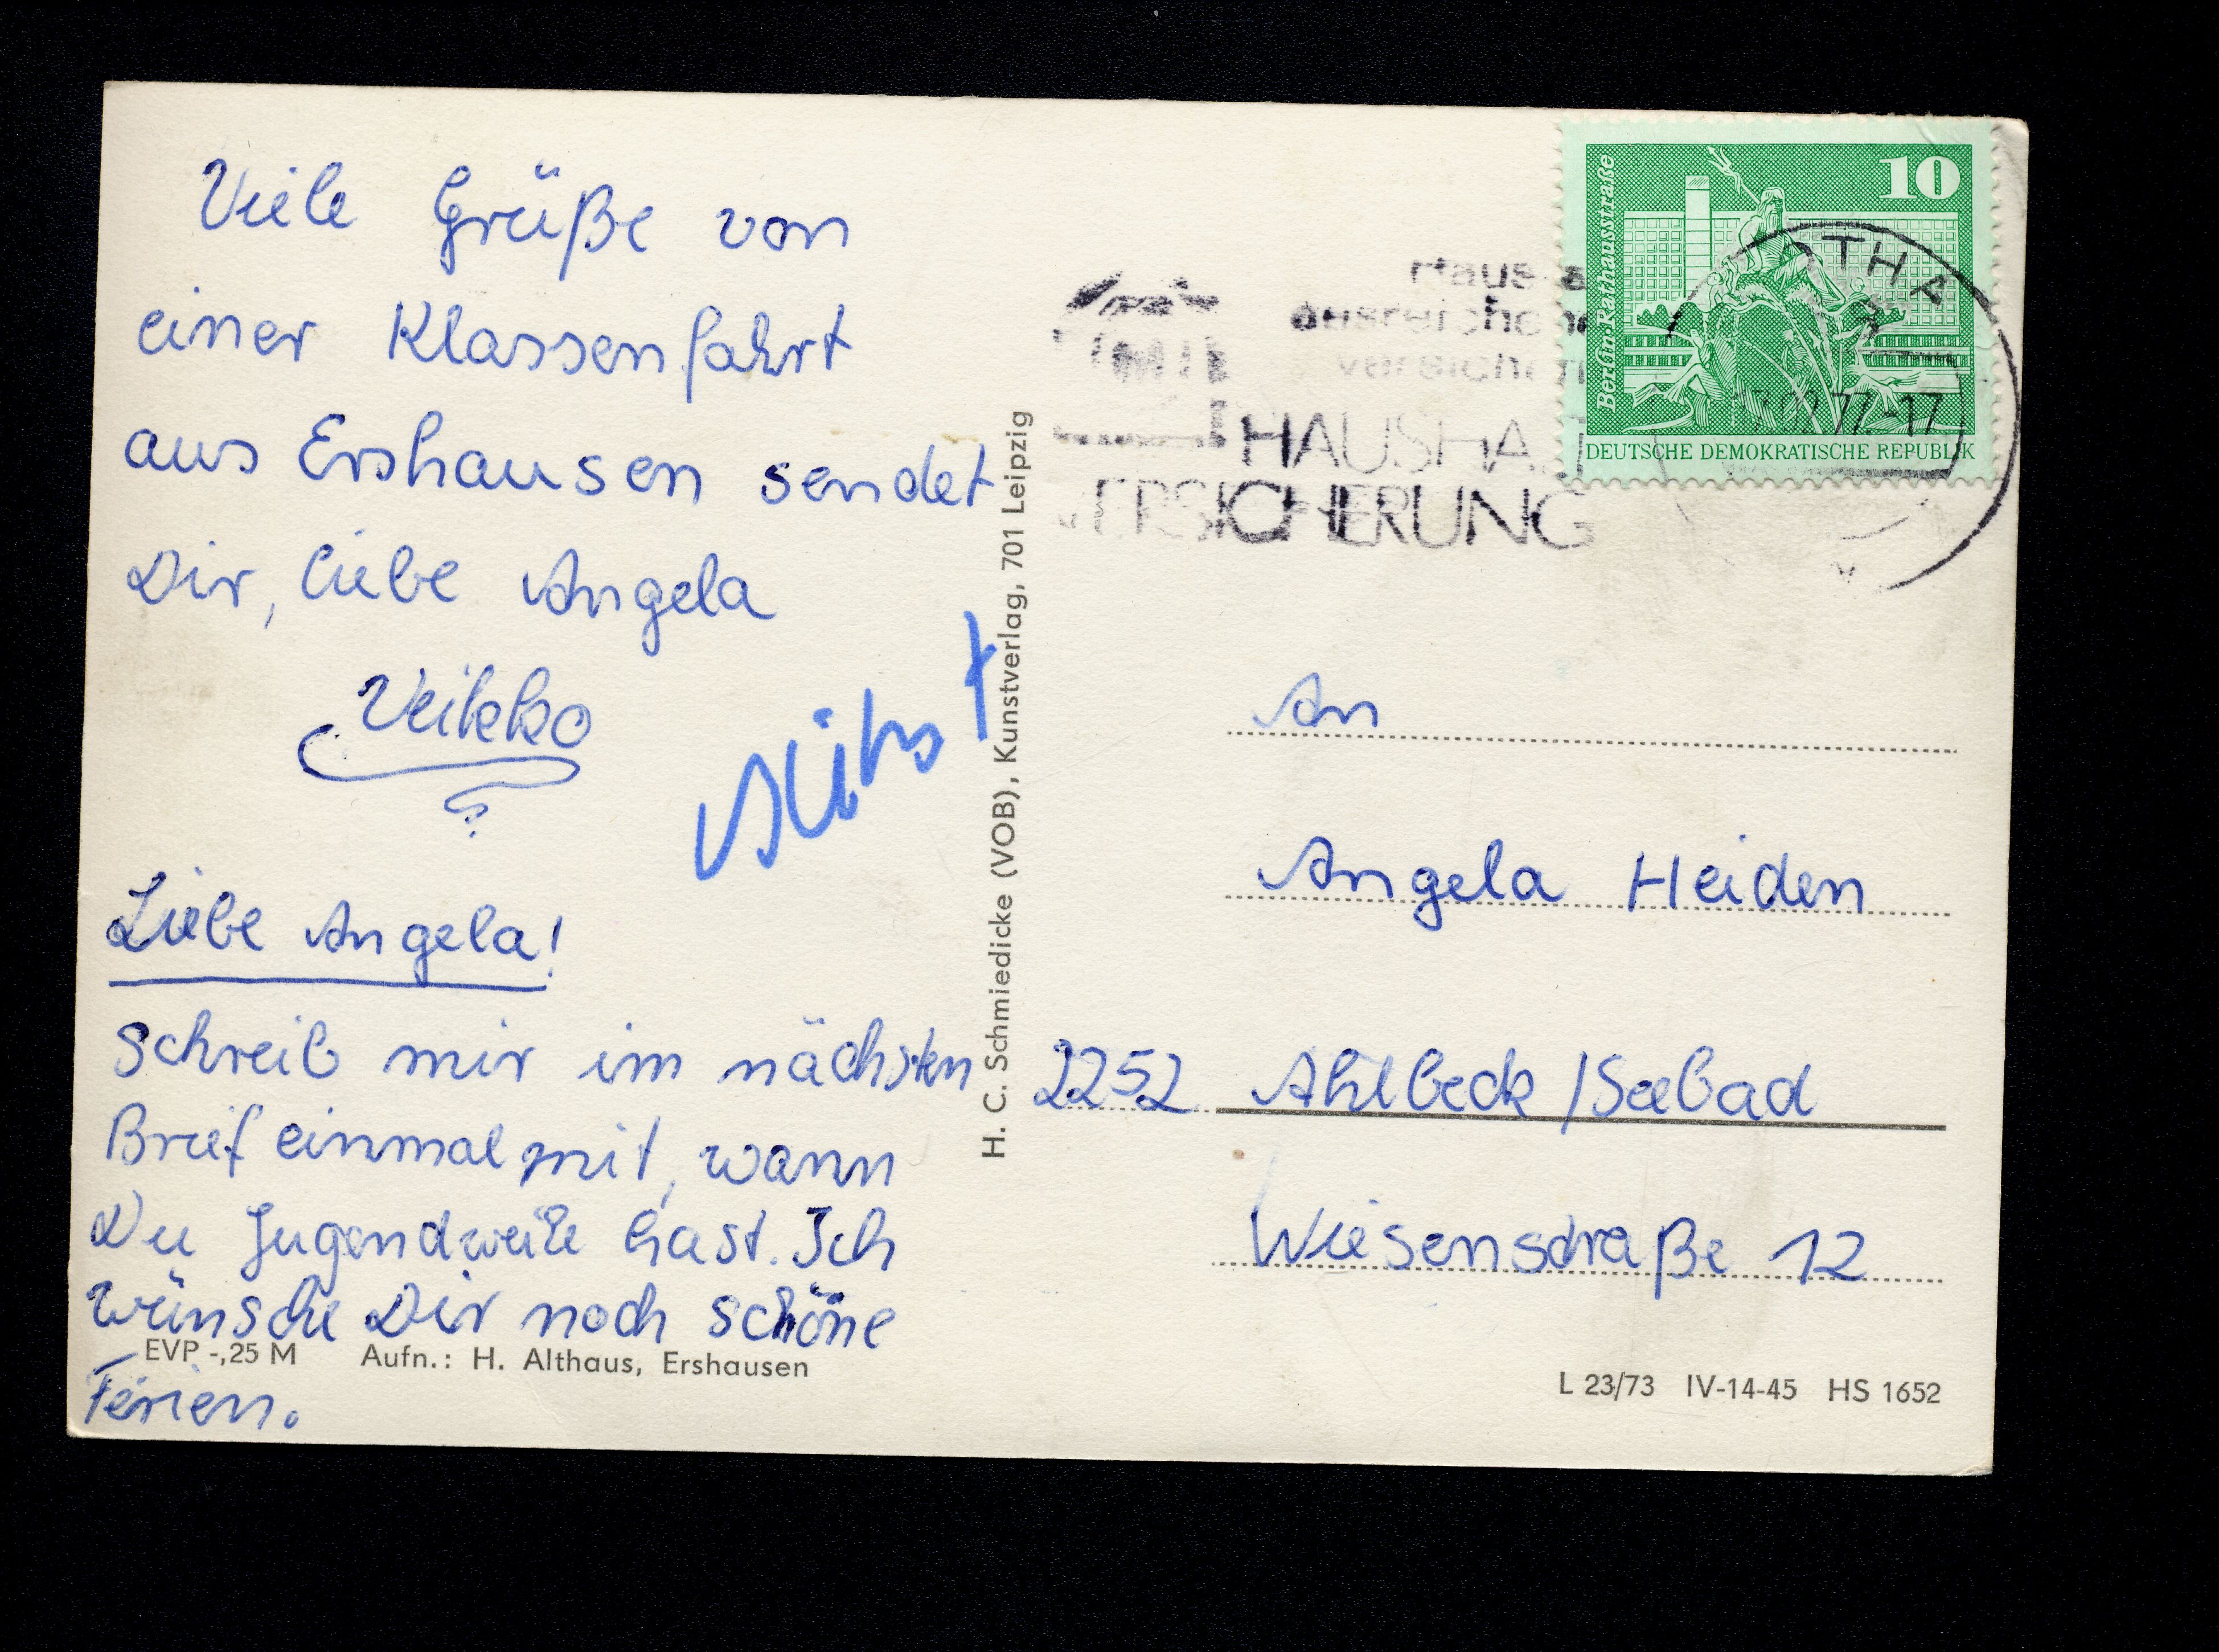 Viele Grüße von
einer Klassenfahrt
aus Ershausen sendet
Dir, liebe Angela
Veikko
Liebe Angela!
Schreib mir im nächsten
Brief einmal mit, wann
Du Jugendweihe hast. Ich
wünsche Dir noch schöne
Ferien.
EVP -,25 M Aufn.: H. Althaus, Ershausen
H. C. Schmiedicke (VOB), Kunstverlag, 701 Leipzig
10
Berlin·Rathausstraße
DEUTSCHE DEMOKRATISCHE REPUBLIK
OTHA
77-17
HAUSHA
VERSICHERUNG
An
Angela Heiden
2252 Ahlbeck /Seebad
Wiesenstraße 12
L 23/73 IV-14-45 HS 1652